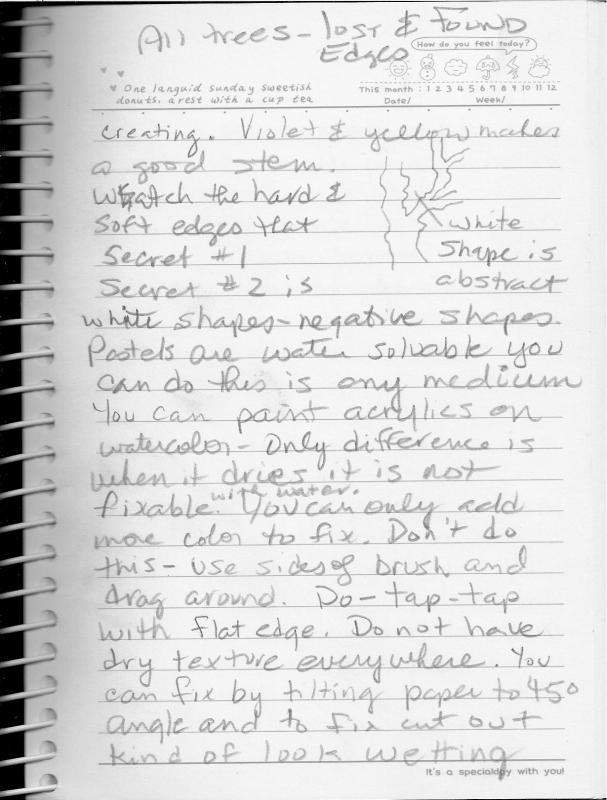 All trees - lost & Found
Edges
How do you feel today?
One languid sunday sweetish
donuts. a rest with a cup tea
This month : 1 2 3 4 5 6 7 8 9 10 11 12
Date/ Week/
creating. Violet & yellow makes
a good stem.
Watch the hard &
soft edges that
Secret #1
Secret #2 is
white
shape is
abstract
white shapes-negative shapes.
Pastels are water solvable you
can do this is any medium
You can paint acrylics on
watercolor - Only difference is
when it dries it is not
fixable with water. You can only add
more color to fix. Don't do
this - use sides of brush and
drag around. Do - tap - tap
with flat edge. Do not have
dry texture everywhere. You
can fix by tilting paper to 450
angle and to fix cut out
kind of look wetting
It's a specialday with you!